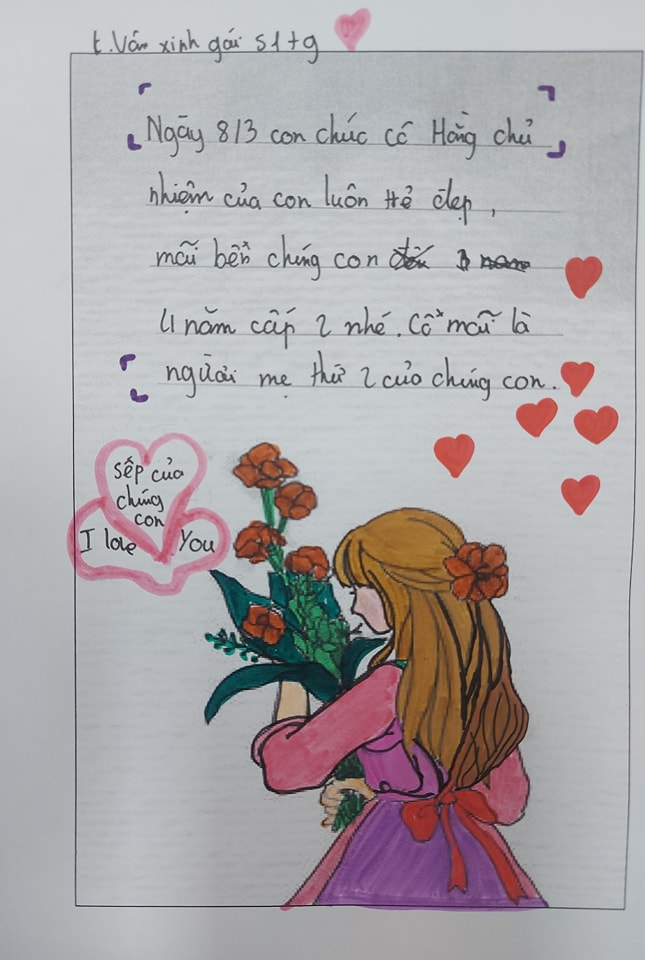 t. Vân xinh gái s1tg
Ngày 8/3 con chúc cô Hằng chủ
nhiệm của con luôn trẻ đẹp,
mãi bên chúng con
4 năm cấp 2 nhé. Cô mãi là
người mẹ thứ 2 của chúng con.
Sếp của
chúng
con
I love You